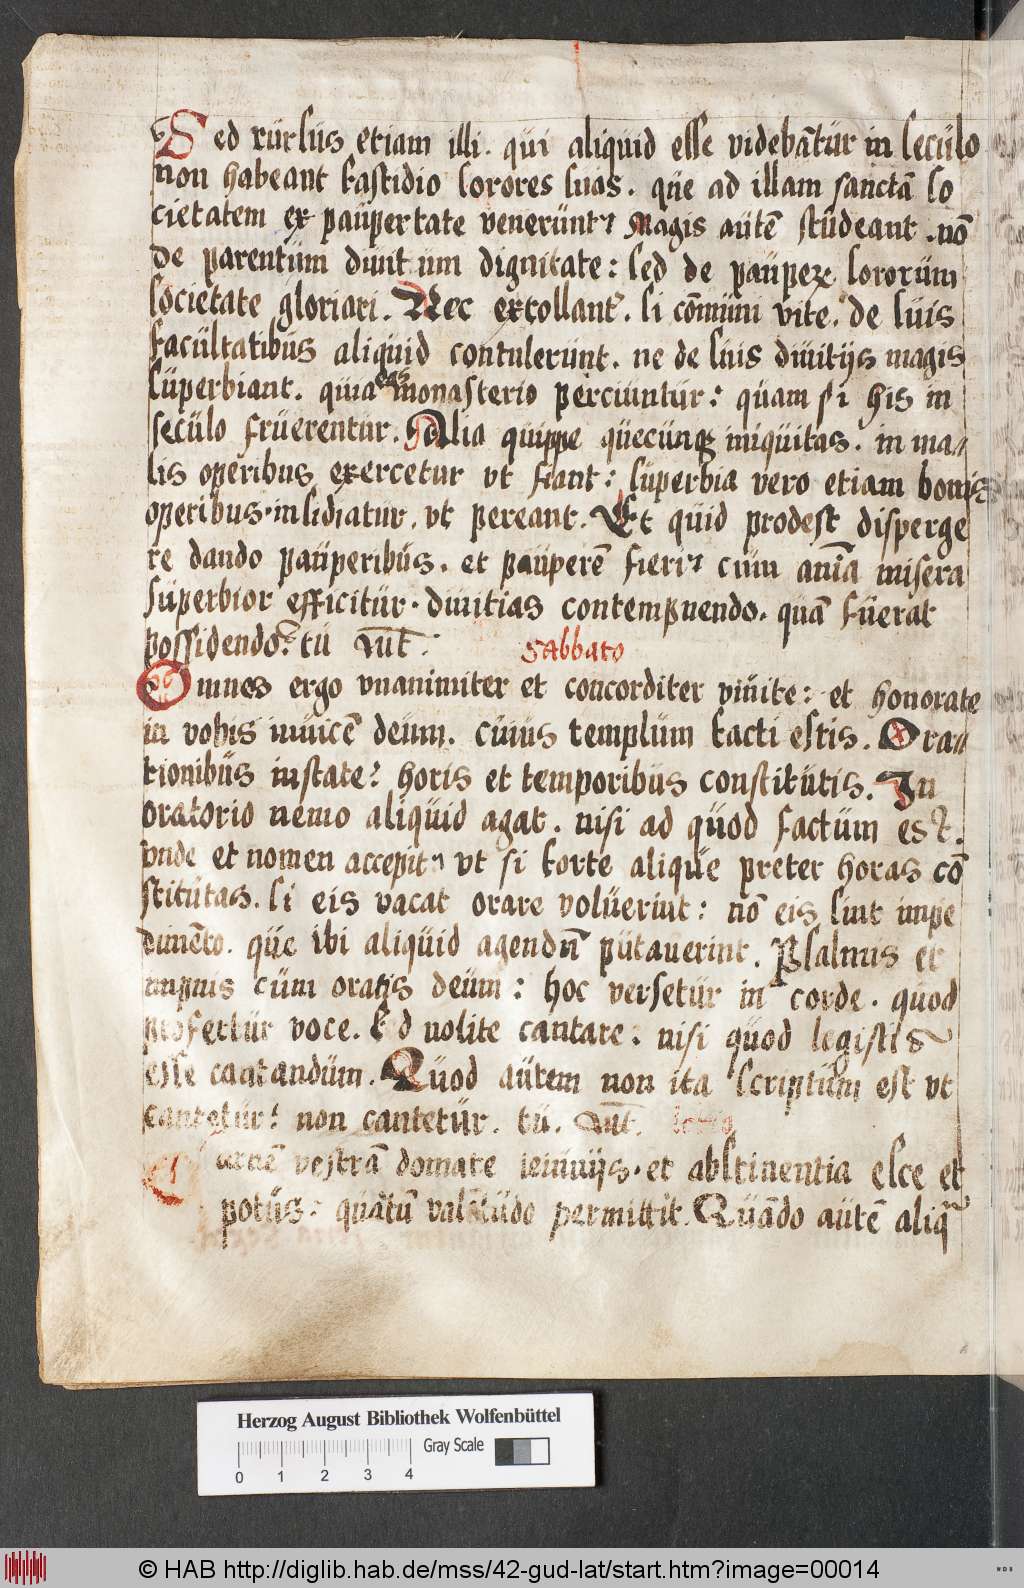 Sed rürsüs etiam illi. qüi aliqüid esse videbātür in secülo
non habeant fastidio sorores suas. qüe ad illam sanctā so
cietatem ex paüpertate venerünt? Magis aütē stüdeant. nō
de parentüm diüitum dignitate: sed de paüpeꝝ sororüm
societate gloriari. Nec extollant᷑. si cōmüni vite. de süis
facültatibüs aliquid contulerünt. ne de süis diüitijs magis
süperbiant. quia eas monasterio perciüntür: quam si his in
secülo früerentür. Alia quippe qüecünqꝫ iniqüitas. in ma//
lis operibus exercetur vt fiant: süperbia vero etiam bonis
operibus insidiatur. vt pereant. Et qüid prodest disperge
re dando paüperibüs. et paüperē fieri? cüm anīa misera
süperbior efficitür. diüitias contempnendo. quā füerat
possidendo? tü aūt.
Sabbato
Omnes ergo vnanimiter et concorditer viüite: et honorate
in vobis inuicē deüm. cüiüs templüm facti estis. Ora//
tionibüs instate? horis et temporibüs constitütis. In
oratorio nemo aliqüid agat. nisi ad qüod factüm est.
vnde et nomen accepit? vt si forte aliqüe preter horas cō
stitütas. si eis vacat orare volüerint: nō eis sint impe
dimēto. qüe ibi aliqüid agendū pütauerint. Psalmis et
impnis cüm oratis deüm: hoc versetür in corde. quod
profertür voce. Et nolite cantare: nisi qüod legistis
esse cantandüm. Qüod aütem non ita scriptüm est vt
cantetür? non cantetür. tü. aūt.
Carnē vestrā domate ieiünijs. et abstinentia esce et
potüs: quātū valitüdo permittit. Qüādo aütē aliq̄
Herzog August Bibliothek Wolfenbüttel
Gray Scale
0 1 2 3 4
© HAB http://diglib.hab.de/mss/42-gud-lat/start.htm?image=00014